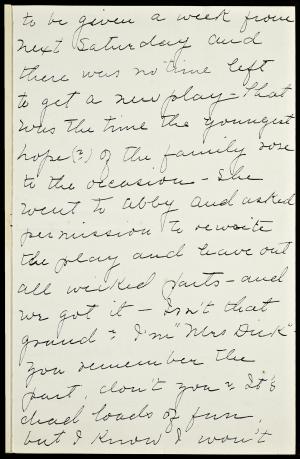 to be given a week from
next Saturday and
there was no time left
to get a new play - That
was the time the youngest
hope (?) of the family rose
to the occasion - She
went to Abby and asked
permission to rewrite
the play and leave out
all wicked parts - and
we got it - Isn't that
grand? I'm "Mrs Dick" -
you remember the
part, don't you? It's
dead loads of fun,
but I know I won't